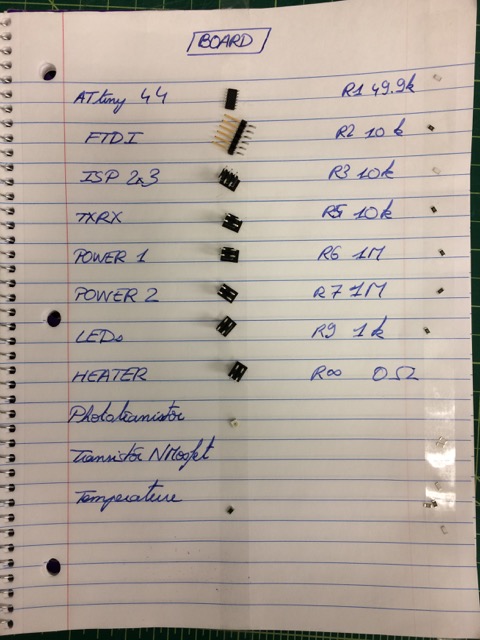 BOARD
ATtiny 44 R1 49.9k
FTDI R2 10k
ISP 2x3 R3 10k
TXRX R5 10k
POWER 1 R6 1M
POWER 2 R7 1M
LEDs R9 1k
HEATER R00 0Ω
Phototranistor
Transistor NMosfet
Temperature